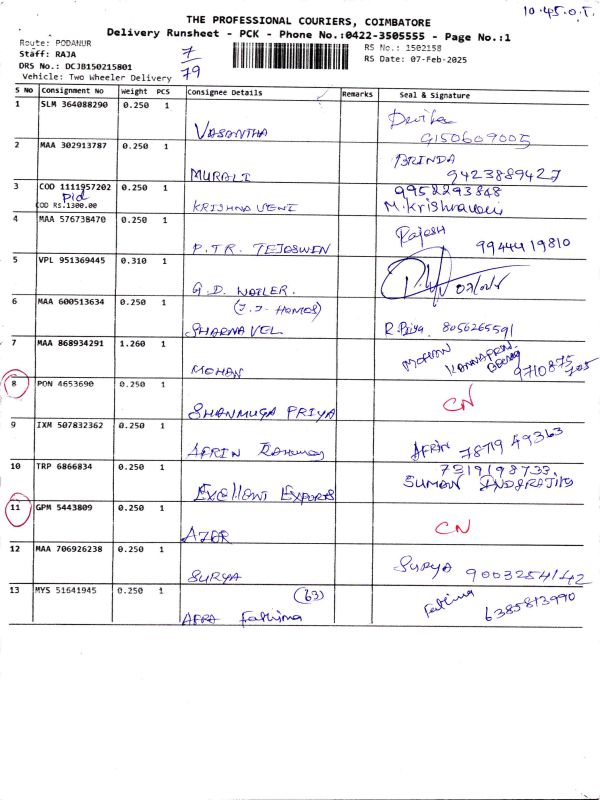 10.45.O.T.
THE PROFESSIONAL COURIERS, COIMBATORE
Delivery Runsheet - PCK - Phone No.:0422-3505555 - Page No.:1
Route: PODANUR 7 RS No.: 1502158
Staff: RAJA 79 RS Date: 07-Feb-2025
DRS No.: DCJB150215801
Vehicle: Two Wheeler Delivery
S No Consignment No Weight PCS Consignee Details Remarks Seal & Signature
1 SLM 364088290 0.250 1
VASANTHA 9150609005
2 MAA 302913787 0.250 1 BRINDA
MURALI 9423889427
3 COD 1111957202 0.250 1 9952293848
Pid
COD RS.1300.00 KRISHNA VENI M.Krishnaveni
4 MAA 576738470 0.250 1 Rajesh
P.TR. TEJOSWIN 9944419810
5 VPL 951369445 0.310 1
G.D.
6 MAA 600513634 0.250 1 (J.J. HOMES)
SHARNA VEL R.Priya. 8056265591
7 MAA 868934291 1.260 1 MOHAN
MOHAN 9710875705
8 PON 4653690 0.250 1 CN
SHANMUGA PRIYA
9 IXM 507832362 0.250 1
AFRIN AFRIN 78719 49363
10 TRP 6866834 0.250 1 7319198733
Excellent Exports SUMAN
11 GPM 5443809 0.250 1 CN
AZAR
12 MAA 706926238 0.250 1 SURYA
SURYA 9003254142
13 MYS 51641945 0.250 1 (63) Fathima
AFRA Fathima 6385813990